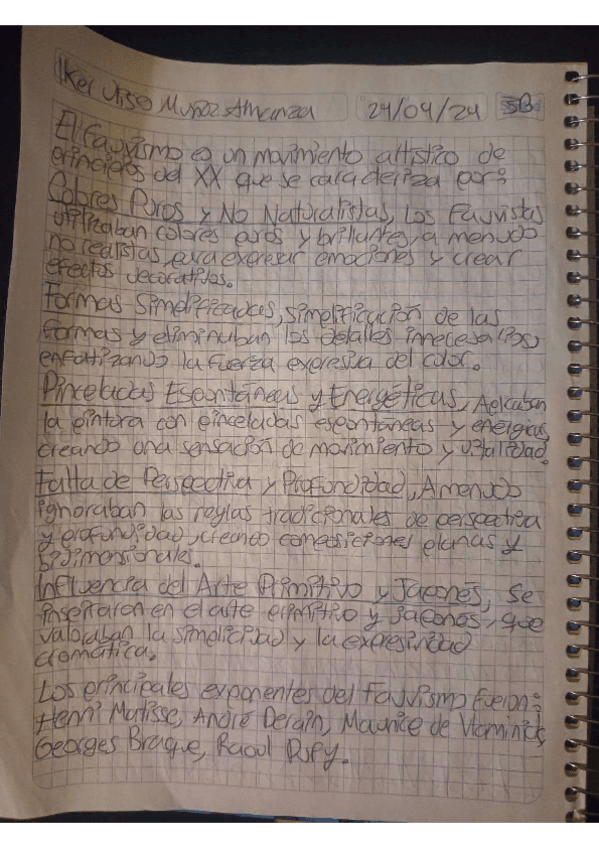 Iker Muñoz Almanza 24/04/24 5B
El Fauvismo es un movimiento artístico de
principios del XX que se caracteriza por:
Colores Puros y No Naturalistas, Los Fauvistas
utilizaban colores puros y brillantes, a menudo
no realistas, para expresar emociones y crear
efectos decorativos.
Formas Simplificadas, simplificación de las
formas y eliminaban los detalles innecesarios,
enfatizando la fuerza expresiva del color.
Pinceladas Espontáneas y Energéticas, Aplicaban
la pintura con pinceladas espontáneas y energicas,
creando una sensación de movimiento y vitalidad.
Falta de Perspectiva y Profundidad, A menudo
ignoraban las reglas tradicionales de perspectiva
y profundidad, creando composiciones planas y
bidimensionales.
Influencia del Arte Primitivo y Japonés, Se
inspiraron en el arte primitivo y japonés, que
valoraban la simplicidad y la expresividad
cromática.
Los principales exponentes del Fauvismo fueron:
Henri Matisse, André Derain, Maurice de Vlaminick,
Georges Braque, Raoul Dufy.